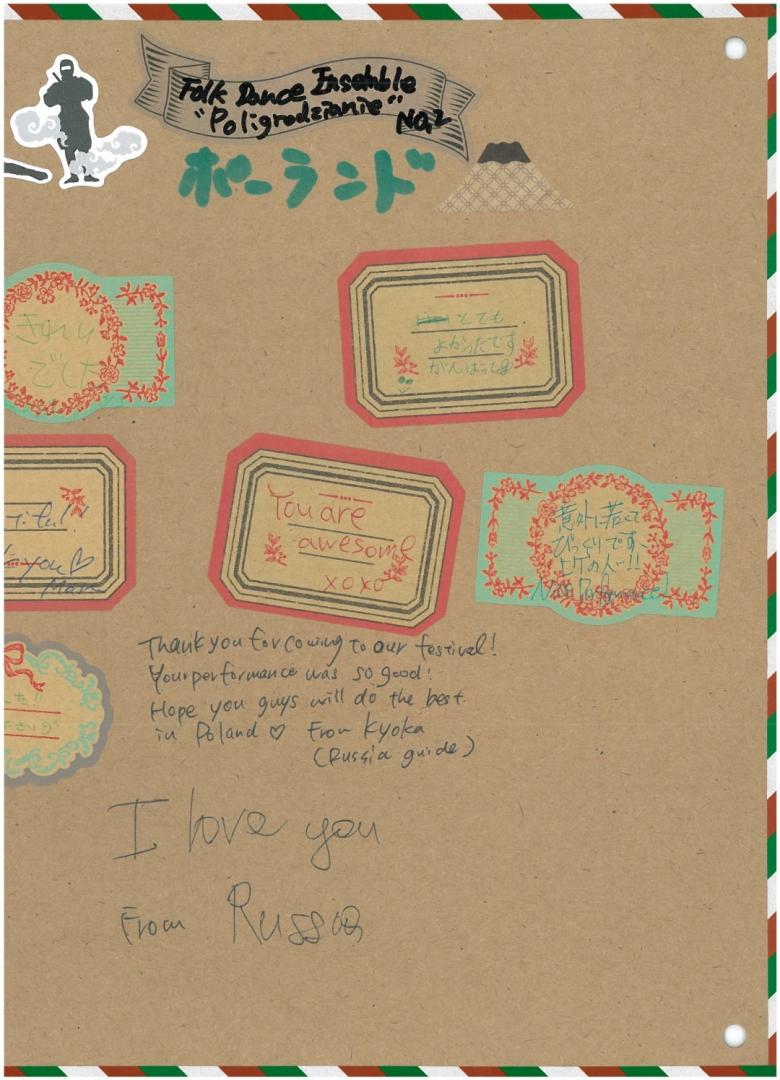 Folk Dance Ensemble
"Poligrodzianie" No.2
ポーランド
きれい
でした
とても
よかったです
がんばって
You are
awesome
xoxo
意外に若くて
びっくりです、
上げの人ー!!
Nice Performance!
you♡
Thank you for coming to our festival!
Your performance was so good!
Hope you guys will do the best
in Poland ♡ From Kyoka
(Russia guide)
I love you
From Russia